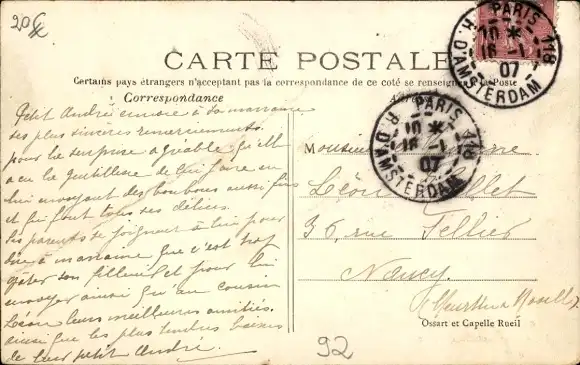 20
CARTE POSTALE
Certains pays étrangers n'acceptant pas la correspondance de ce coté se renseigner à la Poste
Correspondance
PARIS 118
10 *
16 - 1
07
R. D'AMSTERDAM
PARIS 118
10 *
16 - 1
07
R. D'AMSTERDAM
Petit André envoie à sa marraine
ses plus sincères remerciements
pour la surprise agréable qu'elle
a eu la gentillesse de lui faire en
lui envoyant des bonbons aussi fins
et qui font tous ses délices.
Ses parents se joignent à lui pour
dire à marraine que c'est trop
gâter son filleul et pour lui
envoyer ainsi qu'au cousin
Léon leurs meilleures amitiés
ainsi que les plus tendres baisers
de leur petit André.
Monsieur
Léon
36, rue Tellier
Nancy
Meurthe & Moselle
Ossart et Capelle Rueil
92